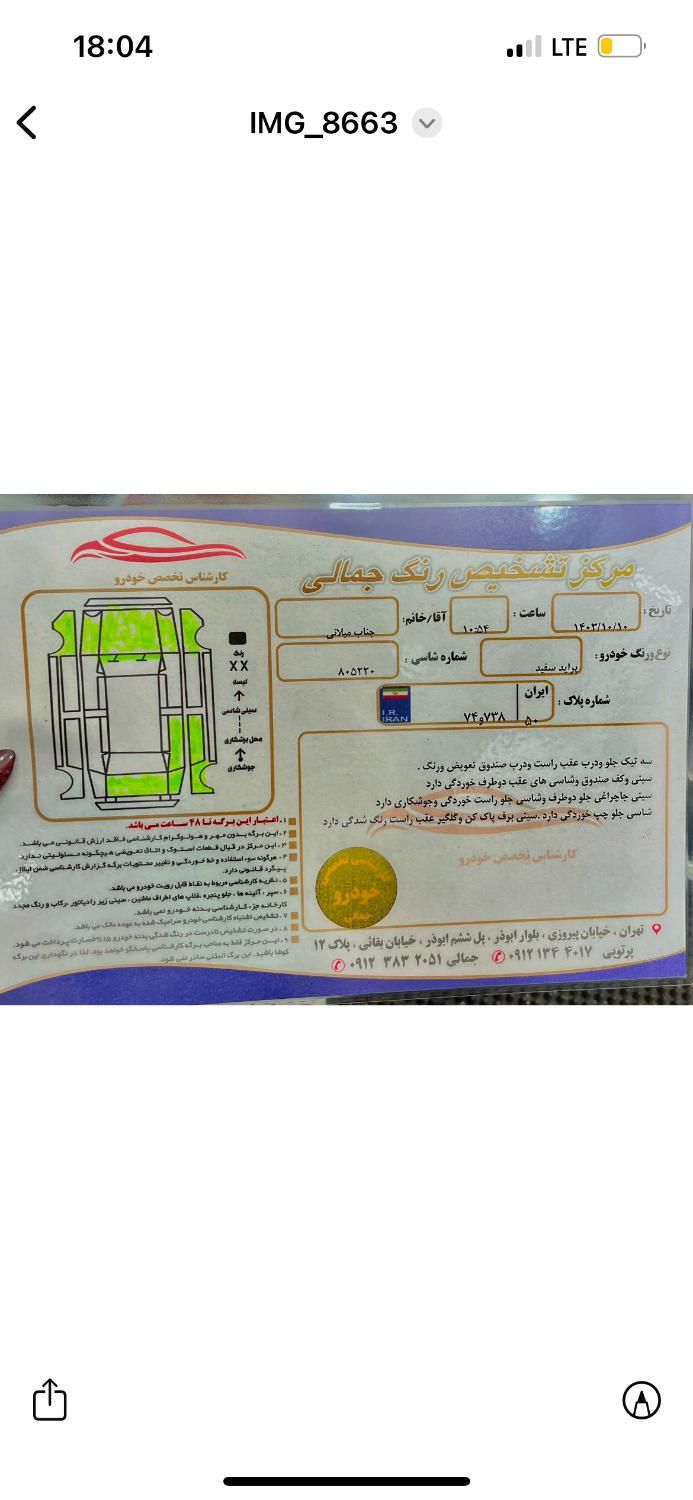 18:04
LTE
IMG_8663
مرکز تشخیص رنگ جمالی
کارشناس تخصص خودرو
تاریخ : ۱۴۰۳/۱۰/۱۰
ساعت : ۱۰:۵۴
آقا/خانم: جناب میلانی
نوع ورنگ خودرو : پراید سفید
شماره شاسی : ۸۰۵۲۲۰
شماره پلاک :
ایران
۵۰
۷۴و۷۳۸
I.R.
IRAN
رنگ
XX
لیسه
سینی شاسی
محل برشکاری
جوشکاری
سه تیک جلو ودرب عقب راست ودرب صندوق تعویض ورنگ .
سینی وکف صندوق وشاسی های عقب دوطرف خوردگی دارد
سینی جاچراغی جلو دوطرف وشاسی جلو راست خوردگی وجوشکاری دارد
شاسی جلو چپ خوردگی دارد .سینی برف پاک کن وگلگیر عقب راست رنگ شدگی دارد
کارشناس تخصص خودرو
خودرو
۱. اعتبار این برگه تا ۴۸ ساعت می باشد.
۲. این برگه بدون مهر و هولوگرام کارشناسی فاقد ارزش قانونی می باشد.
۳. این مرکز در قبال قطعات استوک و اتاق تعویضی هیچگونه مسئولیتی ندارد
۴. هرگونه سوء استفاده و خط خوردگی و تغییر محتویات برگه گزارش کارشناسی ضمن ابطال،
پیگرد قانونی دارد.
۵. نظریه کارشناسی مربوط به نقاط قابل رویت خودرو می باشد.
۶. سپر ، آئینه ها ، جلو پنجره ،فلاپ های اطراف ماشین ، سینی زیر رادیاتور ،رکاب و رنگ مجدد
کارخانه جزء کارشناسی بدنه خودرو نمی باشد.
۷. تشخیص اشتباه کارشناسی خودرو سرامیک شده به عهده مالک می باشد.
۸. در صورت تشخیص نادرست در رنگ شدگی بدنه خودرو ۱۵٪خسارت پرداخت می شود.
۹. این مرکز فقط به صاحب برگه کارشناسی پاسخگو خواهد بود. لذا در نگهداری این برگه
کوشا باشید. این برگ المثنی صادر نمی شود.
تهران ، خیابان پیروزی ، بلوار ابوذر ، پل ششم ابوذر ، خیابان بقائی ، پلاک ۱۲
پرتویی ۰۹۱۲ ۱۳۴ ۴۰۱۷ جمالی ۰۹۱۲ ۳۸۳ ۲۰۵۱